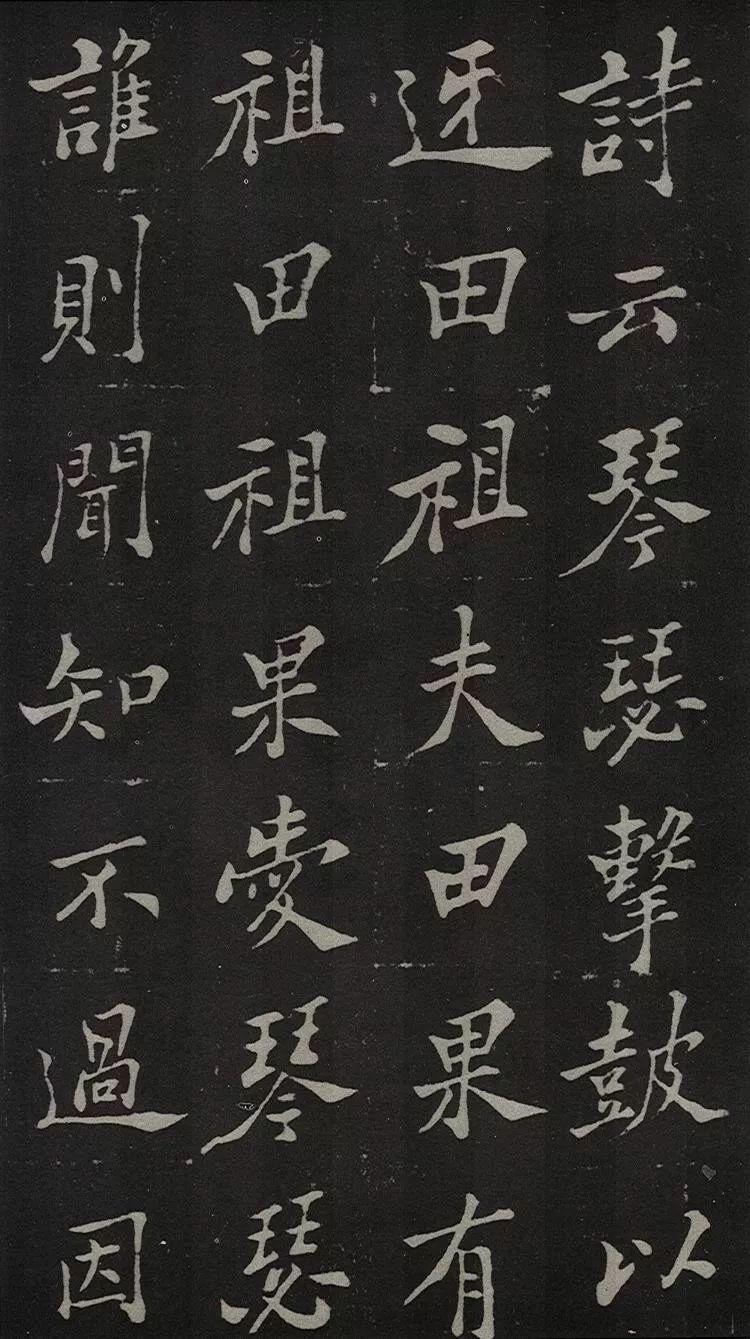 詩云琴瑟擊鼓以
迓田祖夫田果有
祖田祖果愛琴瑟
誰則聞知不過因